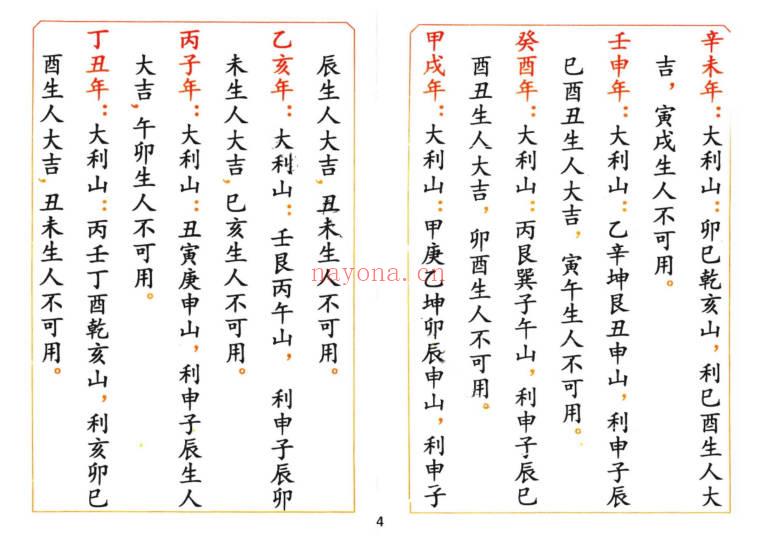 辛未年：大利山：卯巳乾亥山，利巳酉生人大
吉，寅戌生人不可用。
壬申年：大利山：乙辛坤艮丑申山，利申子辰
巳酉丑生人大吉，寅午生人不可用。
癸酉年：大利山：丙艮巽子午山，利申子辰巳
酉丑生人大吉，卯酉生人不可用。
甲戌年：大利山：甲庚乙坤卯辰申山，利申子
辰生人大吉，丑未生人不可用。
乙亥年：大利山：壬艮丙午山，利申子辰卯
未生人大吉，巳亥生人不可用。
丙子年：大利山：丑寅庚申山，利申子辰生人
大吉，午卯生人不可用。
丁丑年：大利山：丙壬丁酉乾亥山，利亥卯巳
酉生人大吉，丑未生人不可用。
4
nayona.cn